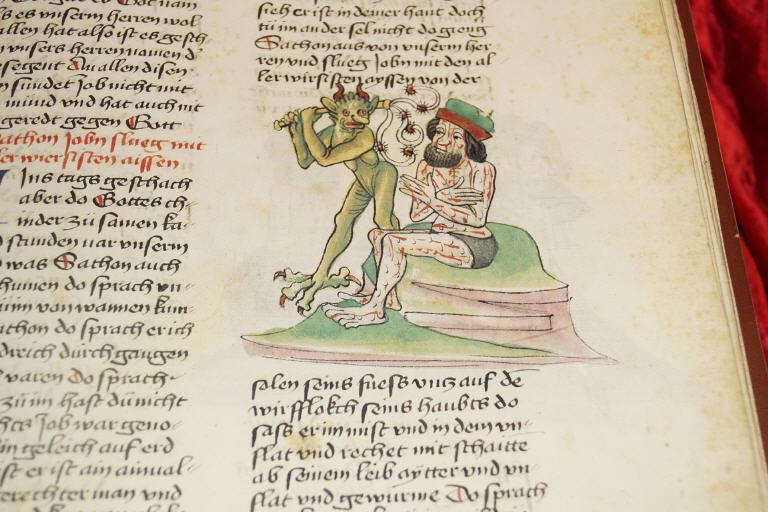 als es vnserm herren wol
allen hat also ist es gesch
vnsers herren namen d
gesegent In allen disen
sundet Job nicht mit
mund vnd hat auch nit
geredt gegen Gott
Sathon Jobn slueg mit
wiersisten aissen
Ins tags geschach
aber do Gottes ch
inder zu samen ka
stunden uar vnserm
was Sathon auch
chumen do sprach vn
von wannen kum
sathon do sprach er ich
dreich durch gangen
waren Do sprach
zu im hast du nicht
Job war geno
in geleich auf erd
er ist ain ainual
gerechter man vnd
sich er ist in deiner haut doch
tu im an der sel nicht do gieng
Sathon aus von vnserm her
ren vnd slueg Jobn mit den al
ler wirsisten ayssen von der
solen seins fuess vncz auf de
wirfflokch seins haubts do
sass er im mist vnd in dem vn
flat vnd rechet mit schaitte
ab seinem leib aytter vnd vn
flat vnd gewurme Do sprach